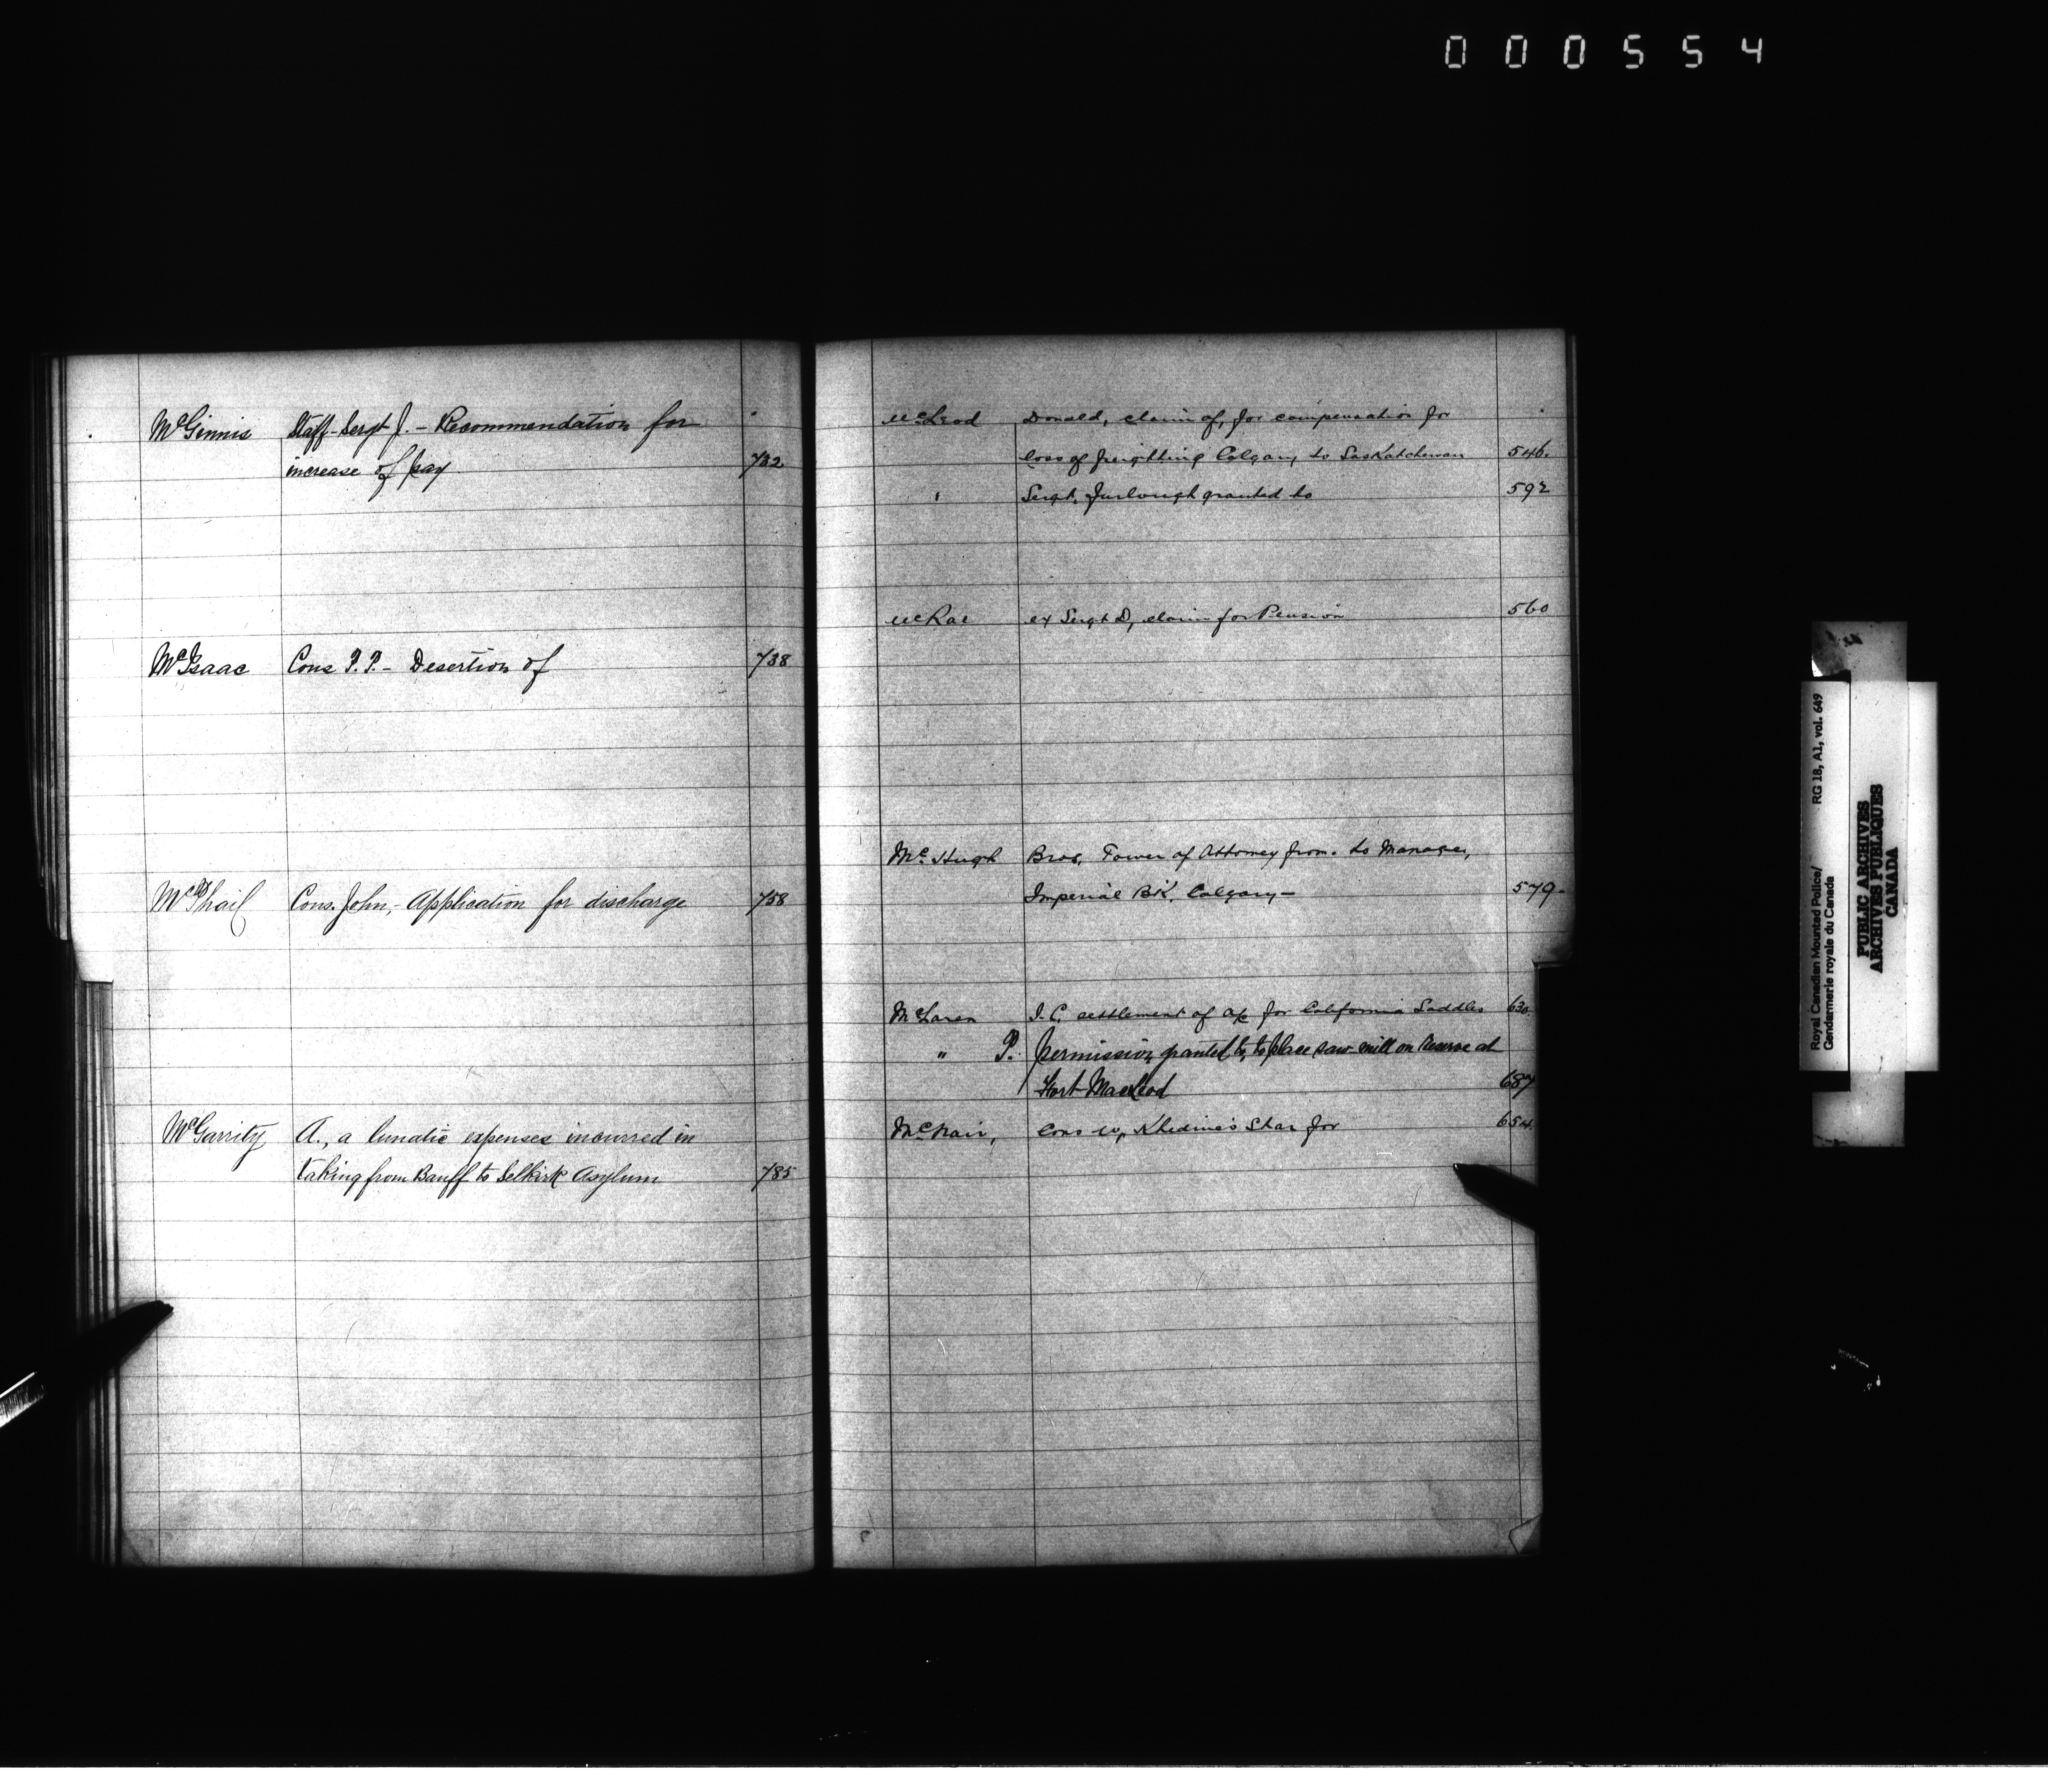 000554
McGinnis Staff-Sergt J. - Recommendation for
increase of pay 732
McIsaac Cons P.P. - Desertion of 738
McPhail Cons. John, - Application for discharge 758
McGarrity A., a lunatic expenses incurred in
taking from Banff to Selkirk Asylum 785
McLeod Donald, claim of, for compensation for
loss of freighting Calgary to Saskatchewan 546.
" Sergt, furlough granted to 592
McRae ex Sergt D, claim for Pension 560
McHugh Bros, Power of Attorney from. to Manager,
Imperial BK. Calgary - 579-
McLaren J.C. settlement of a/c for California Saddles 630.
" P. permission granted to, to place saw mill on Reserve at
Fort MacLeod 687
McNair, Cons W, Khedive's Star for 654.
Royal Canadian Mounted Police/ RG 18, A1, vol. 649
Gendarmerie royale du Canada
PUBLIC ARCHIVES
ARCHIVES PUBLIQUES
CANADA